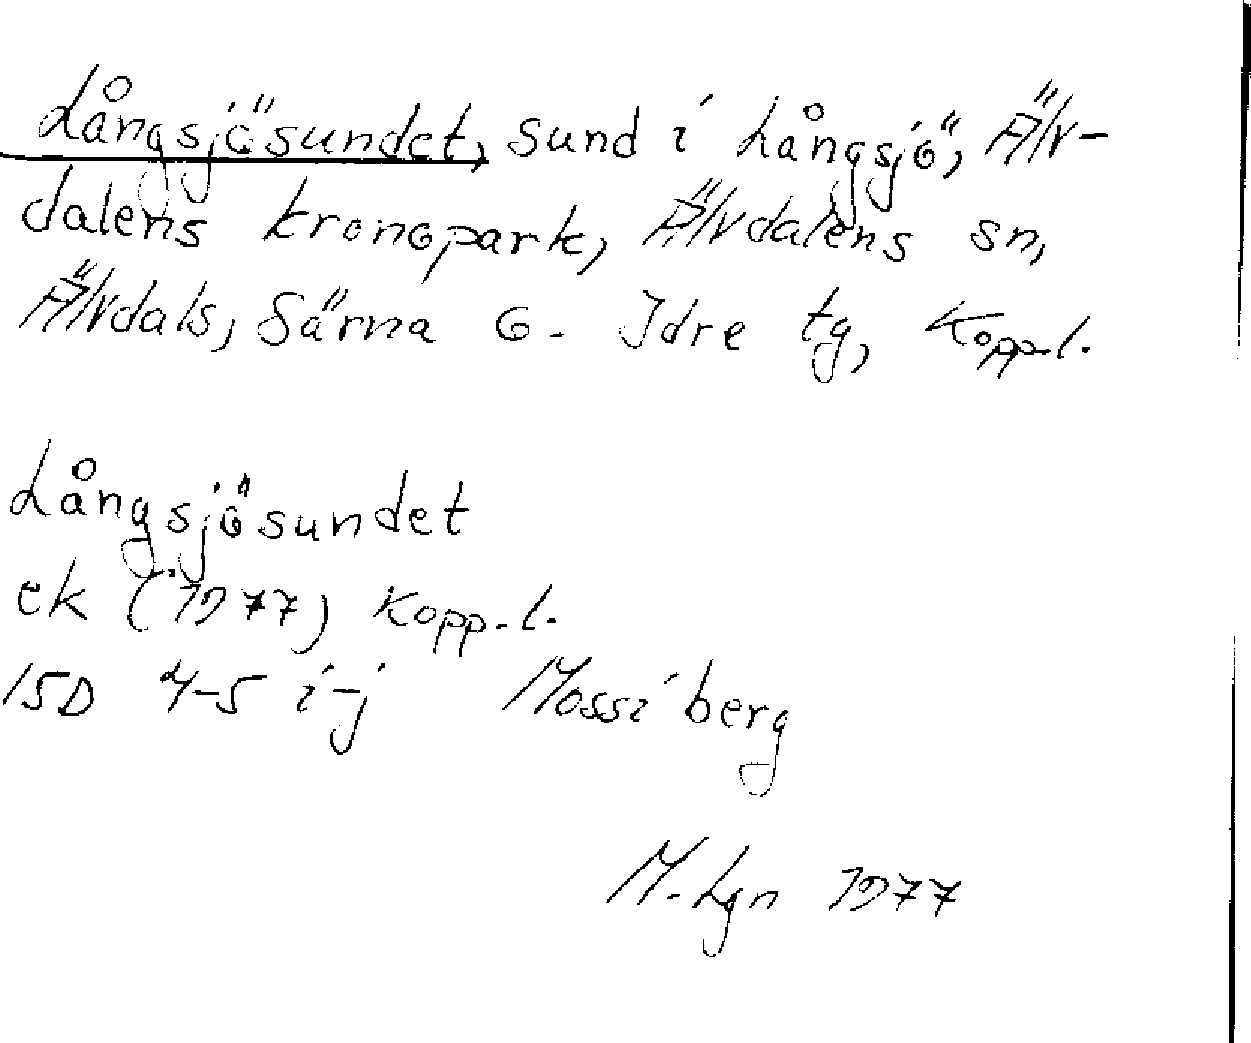 Långsjösundet, sund i Långsjö, Älv-
dalens kronopark, Älvdalens sn,
Älvdals, Särna o. Idre tg, Kopp.l.
Långsjösundet
ek (1977) Kopp.l.
15D 4-5 i-j Mossiberg
M.Lgn 1977